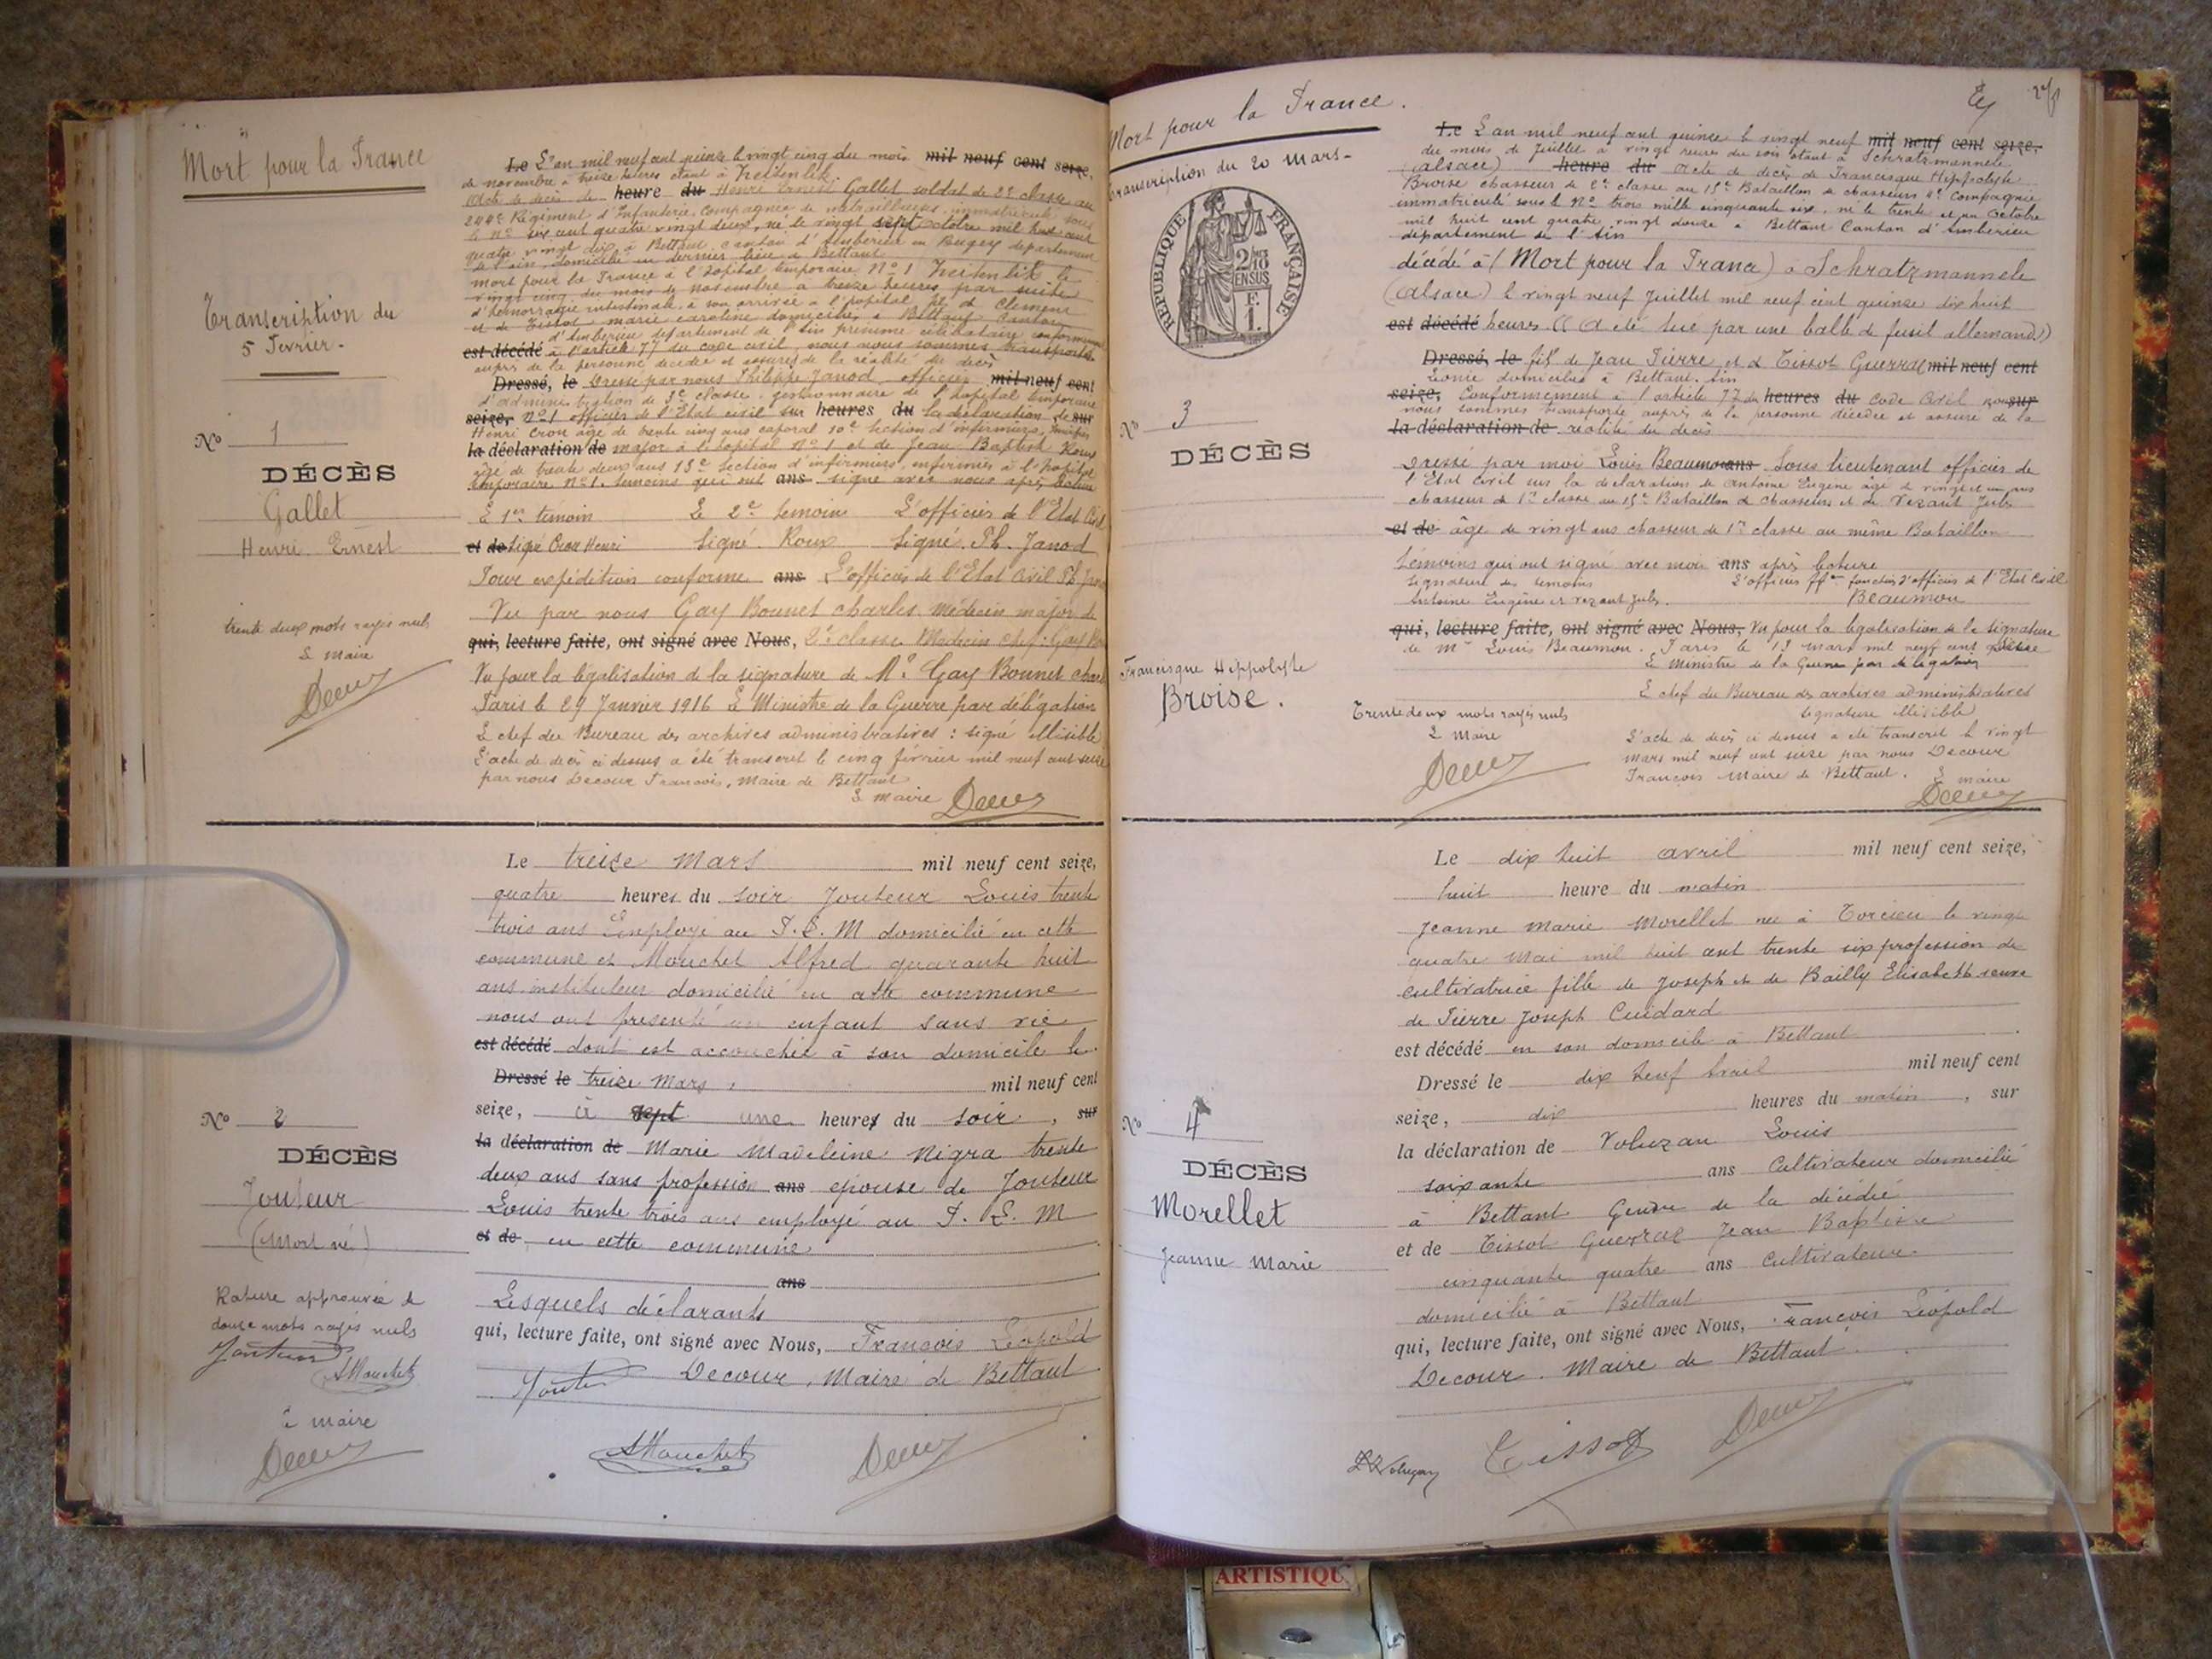 Mort pour la France
Transcription du
5 Fevrier -
No 1
DÉCÈS
Gallet
Henri Ernest
trente deux mots rayés nuls
Le Maire
Decour
Le L'an mil neuf cent quinze le vingt cinq du mois mil neuf cent seize,
de novembre à treize heures étant à
Acte de décès de heure du Henri Ernest Gallet soldat de 2e classe au
244e Régiment d'Infanterie, compagnie de mitrailleuses, immatriculé sous
le no six cent quatre vingt deux, né le vingt sept octobre mil huit cent
quatre vingt dix à Bettant, canton d'Ambérieu en Bugey département
de l'Ain, domicilié en dernier lieu à Bettant
mort pour la France à l'hôpital temporaire No 1 le
vingt cinq du mois de novembre à treize heures par suite
d'hémorragie intestinale à son arrivée à l'hopital, fils de Clément
et de Tissot marie caroline domiciliés à Bettant Canton
d'Ambérieu département de l'Ain présumé célibataire conformément
est décédé à l'article 77 du code civil, nous nous sommes transportés
auprès de la personne décédée et assurés de la réalité du décès
Dressé, le Dressé par nous Philippe Janod officier mil neuf cent
d'administration de 3e classe, gestionnaire de l'hopital temporaire
seize, No 1 officier de l'Etat civil sur heures du la déclaration de sur
Henri Cron âgé de trente cinq ans caporal 10e Section d'infirmiers,
la déclaration de major à l'hopital No 1 et de Jean Baptiste Roux
âgé de trente deux ans 13e Section d'infirmiers, infirmier à l'hopital
temporaire no 1. témoins qui ont ans signé avec nous après lecture
Le 1er temoin Le 2e temoin L'officier de l'Etat Civil
et de Signé Cron Henri Signé. Roux Signé. Ph. Janod
Pour expédition conforme ans L'officier de l'Etat Civil Ph Janod
Vu par nous Gay Bonnet charles Médecin major de
qui, lecture faite, ont signé avec Nous, 2e classe Médecin chef: Gay
Vu pour la légalisation de la signature de Mr Gay Bonnet
Paris le 29 Janvier 1916 Le Ministre de la Guerre par délégation
Le chef du Bureau des archives administratives: signé illisible
L'acte de décès ci dessus a été transcrit le cinq février mil neuf cent seize
par nous Decour Francois, Maire de Bettant
Le Maire Decour
No 2
DÉCÈS
Jouteur
(Mort né)
Rature approuvée de
douze mots rayés nuls
Jouteur
AMouchet
Le maire
Decour
Le treize Mars mil neuf cent seize,
quatre heures du soir Jouteur Louis trente
trois ans Employé au P. L. M domicilié en cette
commune et Mouchet Alfred quarante huit
ans instituteur domicilié en cette commune
nous ont présenté un enfant sans vie
est décédé dont est accouchée à son domicile le
Dressé le treize Mars, mil neuf cent
seize, à sept une heures du soir, sur
la déclaration de Marie Madeleine Nigra trente
deux ans sans profession ans épouse de Jouteur
Louis trente trois ans employé au P. L. M
et de en cette commune
ans
Lesquels déclarants
qui, lecture faite, ont signé avec Nous, François Léopold
Decour, Maire de Bettant
Jouteur
AMouchet Decour
Mort pour la France.
Transcription du 20 Mars -
RÉPUBLIQUE FRANÇAISE
2/10
EN SUS
F.
1.
No 3
DÉCÈS
Francisque Hippolyte
Broise.
Le L'an mil neuf cent quinze le vingt neuf mil neuf cent seize.
du mois de Juillet à vingt heures du soir étant à Schratzmannele
(alsace) heure du Acte de décès de Francisque Hippolyte
Broise chasseur de 2e classe au 15e Bataillon de chasseurs 4e Compagnie
immatriculé sous le No trois mille cinquante six, né le trente et un Octobre
mil huit cent quatre vingt douze à Bettant Canton d'Ambérieu
département de l'Ain
décédé à (Mort pour la France) à Schratzmannele
(Alsace) le vingt neuf Juillet mil neuf cent quinze dix huit
est décédé heures ((a été tué par une balle de fusil allemand))
Dressé, le fils de Jean Pierre et de Tissot Guerraz mil neuf cent
Léonie domiciliés à Bettant. Ain
seize, Conformément à l'article 77 du heures du code Civil sur
nous sommes transporté auprès de la personne décédée et assuré de la
la déclaration de réalité du décès
Dressé par moi Louis Beaumon ans Sous lieutenant officier de
l'Etat civil sur la déclaration de Antoine Eugène âgé de vingt et un ans
chasseur de 1re classe au 15e Bataillon de chasseurs et de Vezant Jules
et de âgé de vingt ans chasseur de 1re classe au même Bataillon
témoins qui ont signé avec moi ans après lecture
Signature des temoins L'officier ff fonction d'officier de l'Etat Civil
Antoine Eugène et Vezant Jules. Beaumon
qui, lecture faite, ont signé avec Nous, Vu pour la légalisation de la signature
de Mr Louis Beaumon. Paris le 13 Mars mil neuf cent seize
Le Ministre de la Guerre par délégation
Le chef du Bureau des archives administratives
signature illisible
Trente deux mots rayés nuls
Le Maire
Decour
L'acte de décès ci dessus a été transcrit le vingt
Mars mil neuf cent seize par nous Decour
François Maire de Bettant. Le maire
Decour
No 4
DÉCÈS
Morellet
Jeanne Marie
Le dix huit avril mil neuf cent seize,
huit heure du matin
Jeanne Marie Morellet née à Torcieu le vingt
quatre Mai mil huit cent trente six profession de
cultivatrice fille de Joseph et de Bailly Elisabeth veuve
de Pierre Joseph Cuidard
est décédé en son domicile à Bettant
Dressé le dix neuf avril mil neuf cent
seize, dix heures du matin, sur
la déclaration de Voluzan Louis
soixante ans Cultivateur domicilié
à Bettant Gendre de la décédée
et de Tissot Guerraz Jean Baptiste
cinquante quatre ans Cultivateur
domicilié à Bettant
qui, lecture faite, ont signé avec Nous, François Léopold
Decour. Maire de Bettant.
Voluzan Tissot Decour
ARTISTIQU